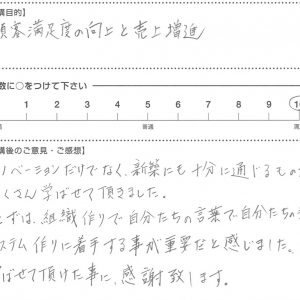 講目的】
顧客満足度の向上と売上増進
数に○をつけて下さい
1 2 3 4 5 6 7 8 9 10
普通
講後のご意見・ご感想】
ノベーションだけでなく、新築にも十分に通じるもの
くさん学ばせて頂きました。
ずは、組織作りで自分たちの言葉で自分たちの
ステム作りに着手する事が重要だと感じました。
ばせて頂けた事に、感謝致します。